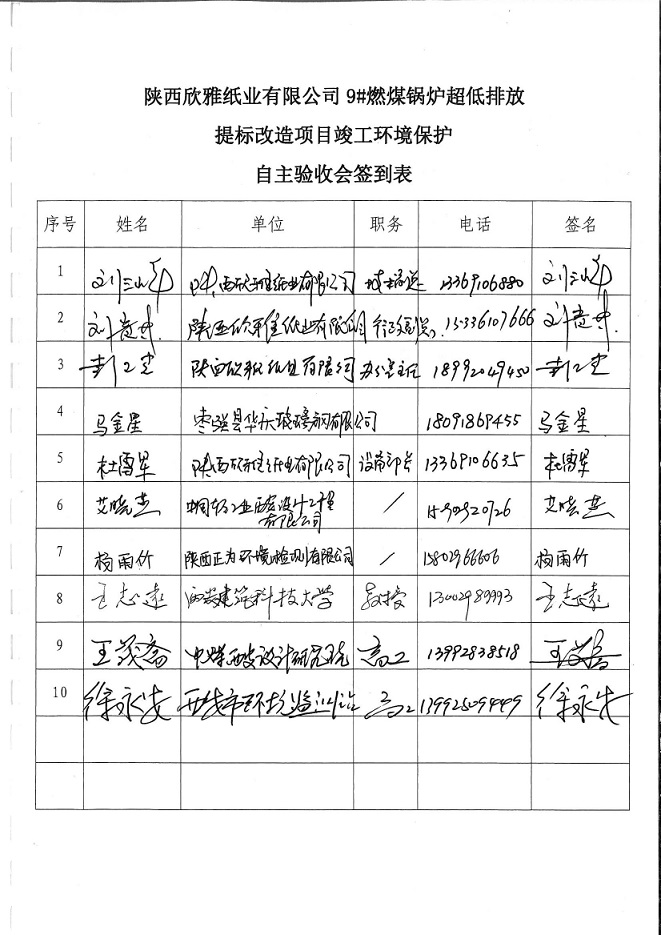 陕西欣雅纸业有限公司 9#燃煤锅炉超低排放
提标改造项目竣工环境保护
自主验收会签到表
序号 姓名 单位 职务 电话 签名
1 陕西欣雅纸业有限公司 13369106880
2 陕西欣雅纸业有限公司 15336107666
3 陕西欣雅纸业有限公司 办公室主任 18992049450
4 马金星 枣强县华庆玻璃钢有限公司 18091869455 马金星
5 杜傅军 陕西欣雅纸业有限公司 设备部长 13369106635 杜傅军
6 艾晓燕 中国轻工业西安设计工程 / 艾晓燕
有限公司
7 杨雨竹 陕西正为环境检测有限公司 / 15802966606 杨雨竹
8 王志远 西安建筑科技大学 教授 13002989993 王志远
9 王茂斋 中煤西安设计研究院 高工 13992838518
10 徐永安 西安市环境监测站 高工 徐永安